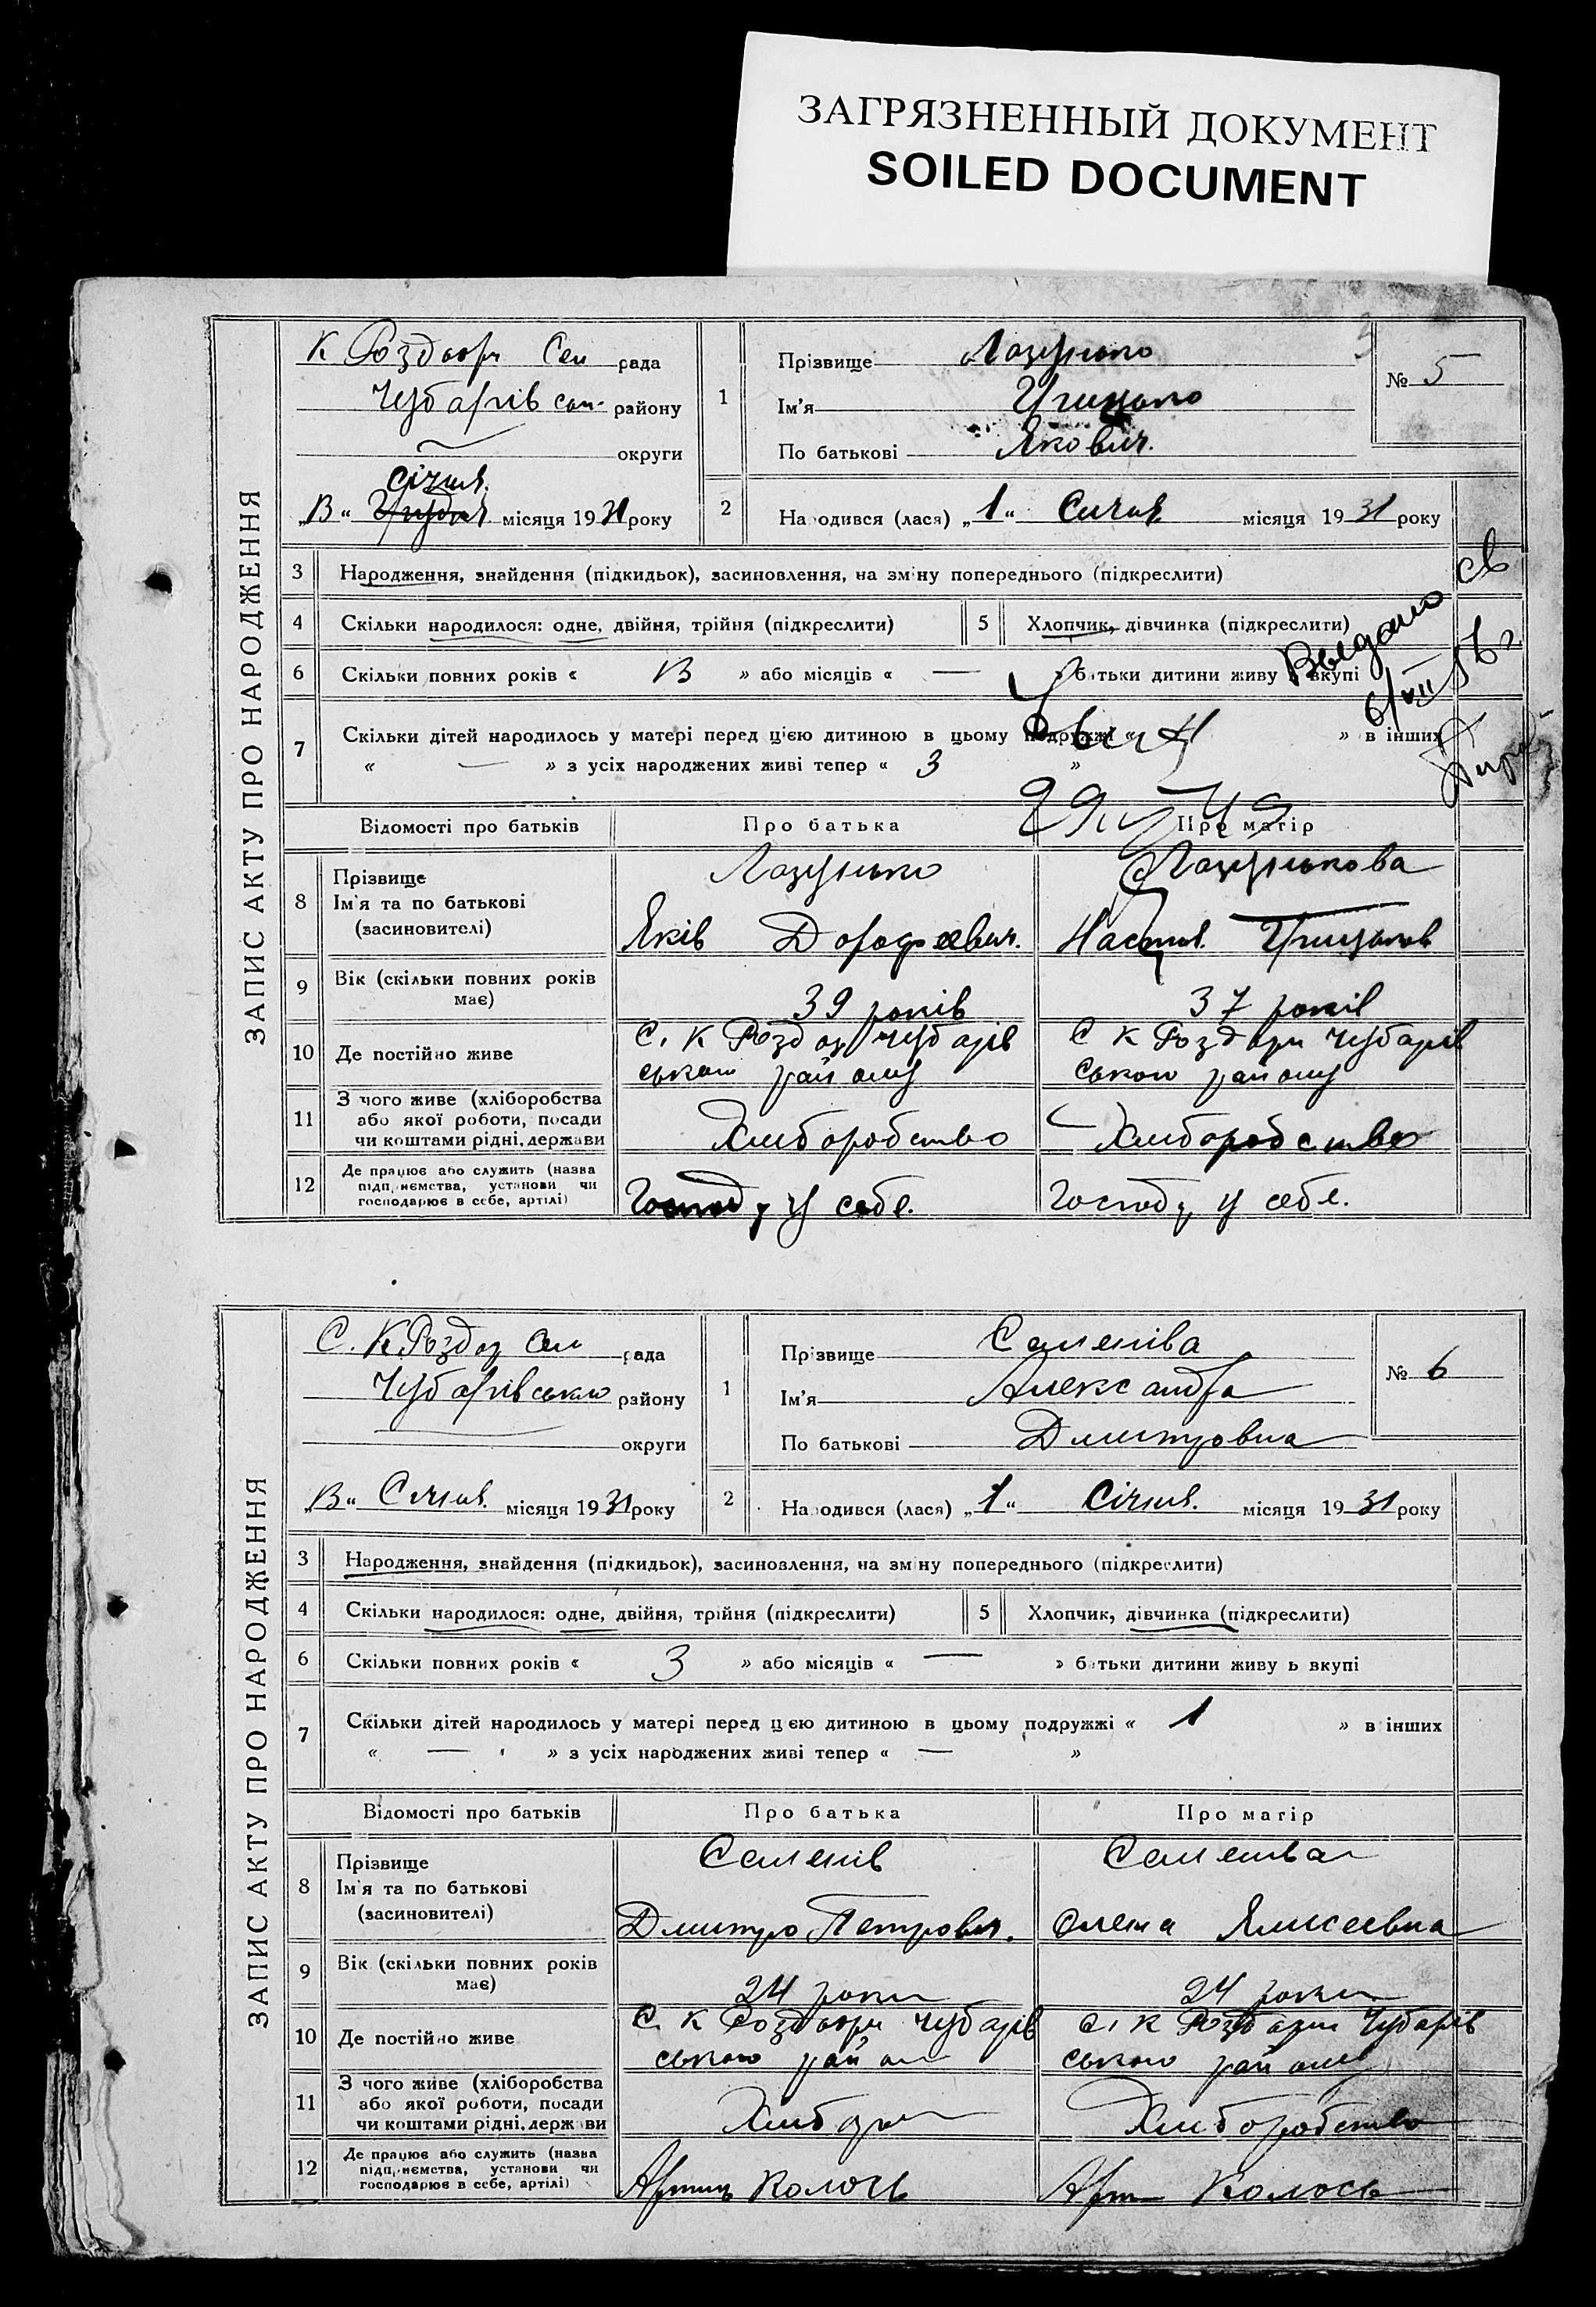 ЗАГРЯЗНЕННЫЙ ДОКУМЕНТ
SOILED DOCUMENT
ЗАПИС АКТУ ПРО НАРОДЖЕННЯ
К Роздори Сел рада
Чубарівсь. району
округи
січня
„13“ місяця 1931 року
1
Прізвище
Ім'я
По батькові Якович.
№ 5
2
Народився (лася) „1“ Січня місяця 1931 року
3 Народження, знайдення (підкидьок), засиновлення, на зміну попереднього (підкреслити)
4 Скільки народилося: одне, двійня, трійня (підкреслити)
5 Хлопчик, дівчинка (підкреслити)
6 Скільки повних років « 13 » або місяців « — » батьки дитини живуть вкупі
Выдано св
7 Скільки дітей народилось у матері перед цією дитиною в цьому подружжі « 4 » в інших
« — » з усіх народжених живі тепер « 3 »
Відомості про батьків Про батька Про матір
8 Прізвище
Ім'я та по батькові
(засиновителі)
Яків Дорофеевич.
Настя
9 Вік (скільки повних років має)
39 років
37 років
10 Де постійно живе
С. К Роздор Чубарів
ського району
С К Роздори Чубарів
ського району
11 З чого живе (хліборобства
або якої роботи, посади
чи коштами рідні, держави
Хлиборобство
Хлиборобство
12 Де працює або служить (назва
підприємства, установи чи
господарює в себе, артілі)
Господ у себе.
Господ у себе.
ЗАПИС АКТУ ПРО НАРОДЖЕННЯ
С. К Роздор Сел рада
Чубарівського району
округи
„13“ Січня місяця 1931 року
1
Прізвище Семеніва
Ім'я Александра
По батькові Дмитровна
№ 6
2
Народився (лася) „1“ Січня. місяця 1931 року
3 Народження, знайдення (підкидьок), засиновлення, на зміну попереднього (підкреслити)
4 Скільки народилося: одне, двійня, трійня (підкреслити)
5 Хлопчик, дівчинка (підкреслити)
6 Скільки повних років « 3 » або місяців « — » батьки дитини живуть вкупі
7 Скільки дітей народилось у матері перед цією дитиною в цьому подружжі « 1 » в інших
« — » з усіх народжених живі тепер « — »
Відомості про батьків Про батька Про матір
8 Прізвище
Ім'я та по батькові
(засиновителі)
Семенів
Дмитро Петрович.
Семенива
Олена Елисеевна
9 Вік (скільки повних років має)
24 роки
24 роки
10 Де постійно живе
С. К Роздори Чубарів
ського район
С. К Роздори Чубарів
ського району
11 З чого живе (хліборобства
або якої роботи, посади
чи коштами рідні, держави
Хлибор
Хлиборобство
12 Де працює або служить (назва
підприємства, установи чи
господарює в себе, артілі)
Артиль Колось
Арт Колось